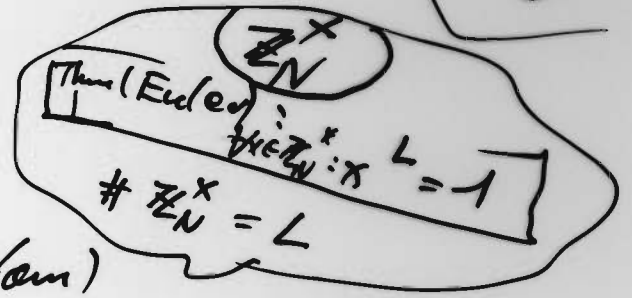 ℤ_N^×
Thm (Euler):
∀x∈ℤ_N^×: x^L = 1
# ℤ_N^× = L